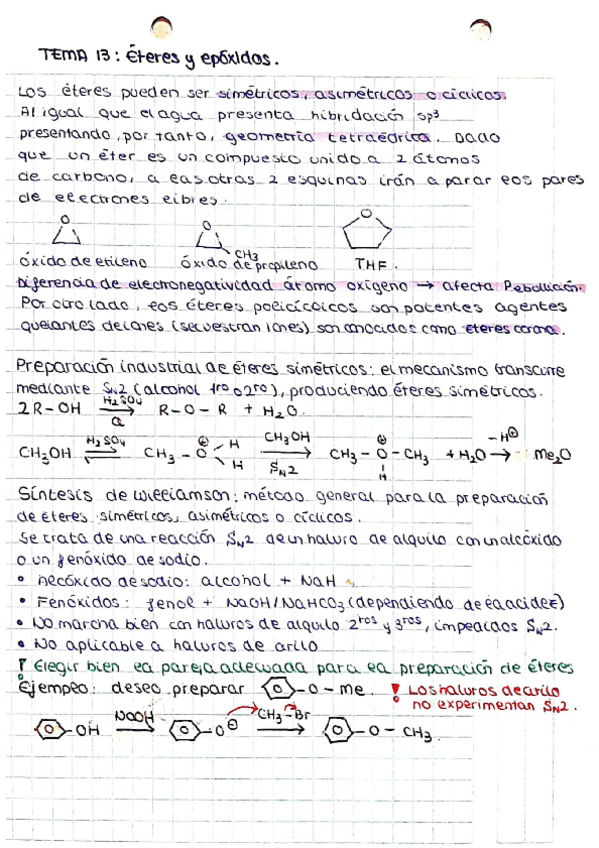 TEMA 13: Éteres y epóxidos.
Los éteres pueden ser simétricos, asimétricos o cíclicos.
Al igual que el agua presenta hibridación sp³
presentando, por tanto, geometría tetraédrica. Dado
que un éter es un compuesto unido a 2 átomos
de carbono, a las otras 2 esquinas irán a parar los pares
de electrones libres.
O O O
CH3
óxido de etileno óxido de propileno THF.
Diferencia de electronegatividad átomo oxígeno → afecta P.ebullición.
Por otro lado, los éteres policíclicos son potentes agentes
quelantes de iones (secuestran iones) son conocidos como éteres corona.
Preparación industrial de éteres simétricos: el mecanismo transcurre
mediante SN2 (alcohol 1rio o 2rio), produciendo éteres simétricos.
2R-OH H2SO4 Q → R-O-R + H2O.
CH3OH H2SO4 ⇌ CH3-O⊕ H H CH3OH → SN2 CH3-O⊕-CH3 H + H2O -H⊕ → Me2O
Síntesis de Williamson: método general para la preparación
de éteres simétricos, asimétricos o cíclicos.
Se trata de una reacción SN2 de un haluro de alquilo con un alcóxido
o un fenóxido de sodio.
• Alcóxido de sodio: alcohol + NaH
• Fenóxidos: fenol + NaOH/NaHCO3 (dependiendo de la acidez)
• No marcha bien con haluros de alquilo 2rios y 3rios, impedidos SN2.
• No aplicable a haluros de arilo
! Elegir bien la pareja adecuada para la preparación de éteres
Ejemplo: deseo preparar -O-Me. ! Los haluros de arilo
no experimentan SN2.
-OH NaOH → -O⊖ CH3-Br → -O-CH3